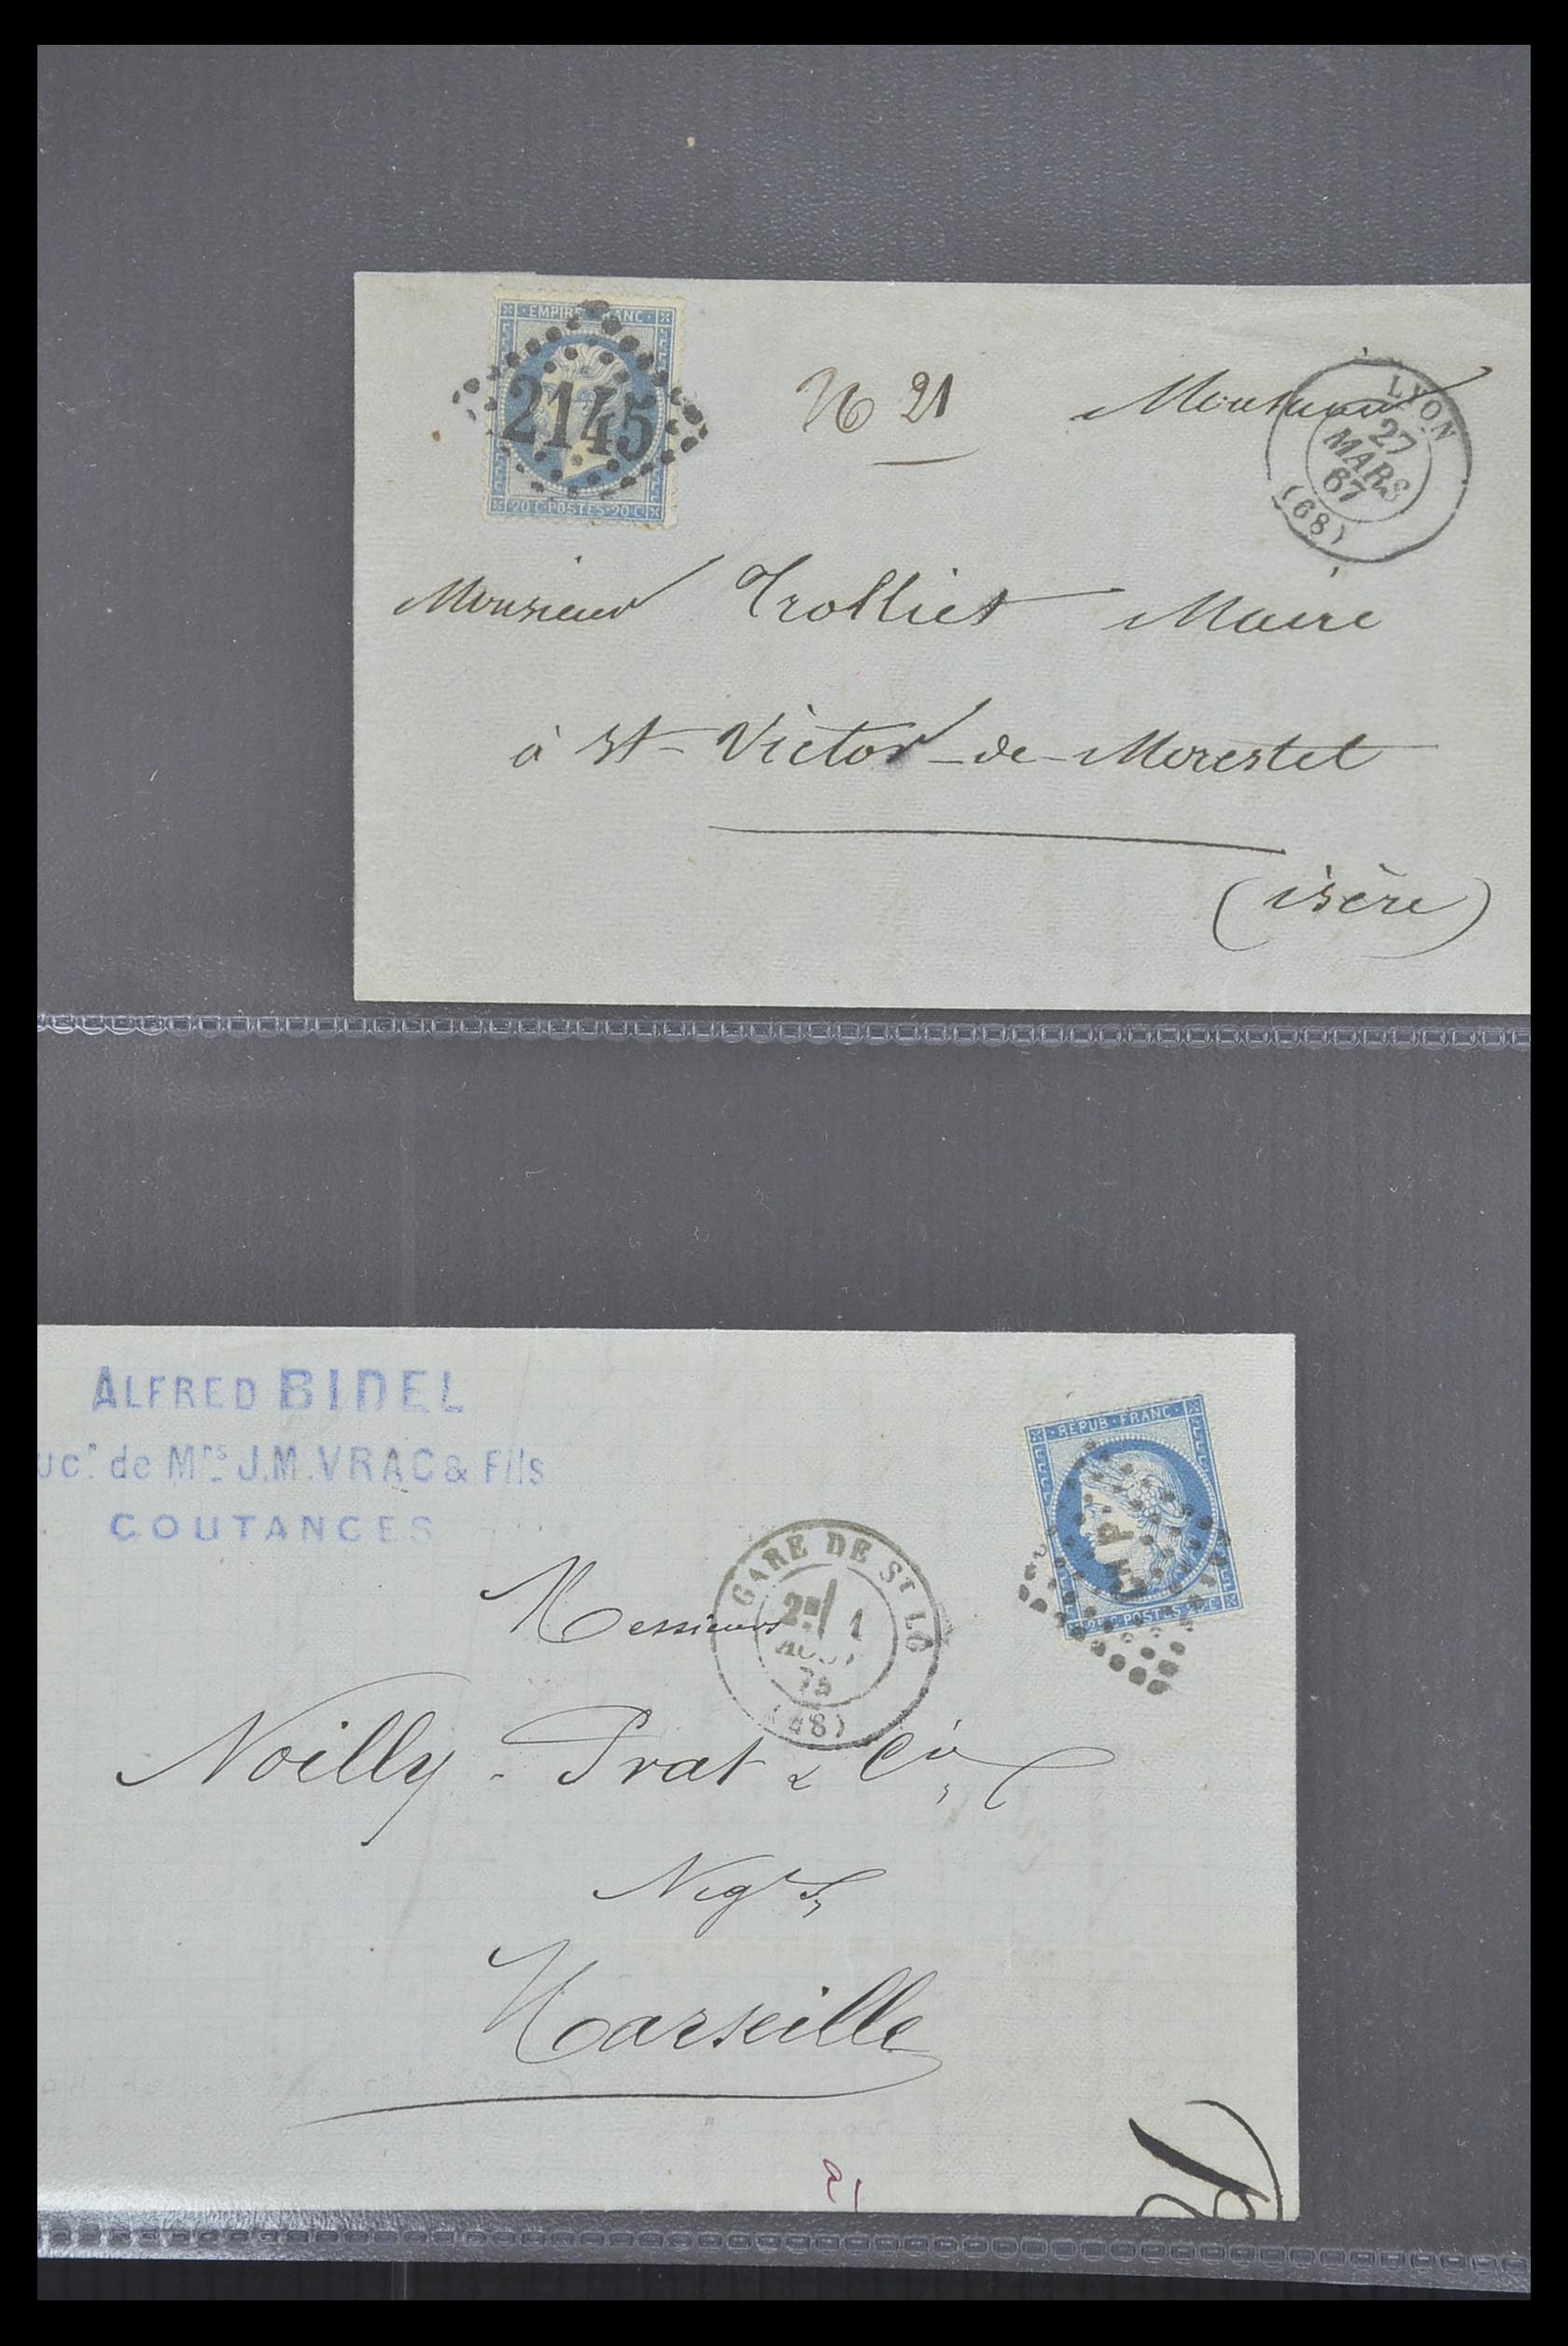 EMPIRE FRANC
2145
20 C POSTES 20 C
N° 21
Monsieur
LYON
27
MARS
67
(68)
Monsieur Trolliet Maire
à St Victor-de-Morestel
(isère)
ALFRED BIDEL
uc.r de Mrs J.M.VRAC & Fils
COUTANCES
REPUB FRANC
25 C POSTES 25 C
GARE DE ST LÔ
2E/ 1
AOUT
75
(48)
Messieurs
Noilly-Prat & Cie
Negts
Marseille